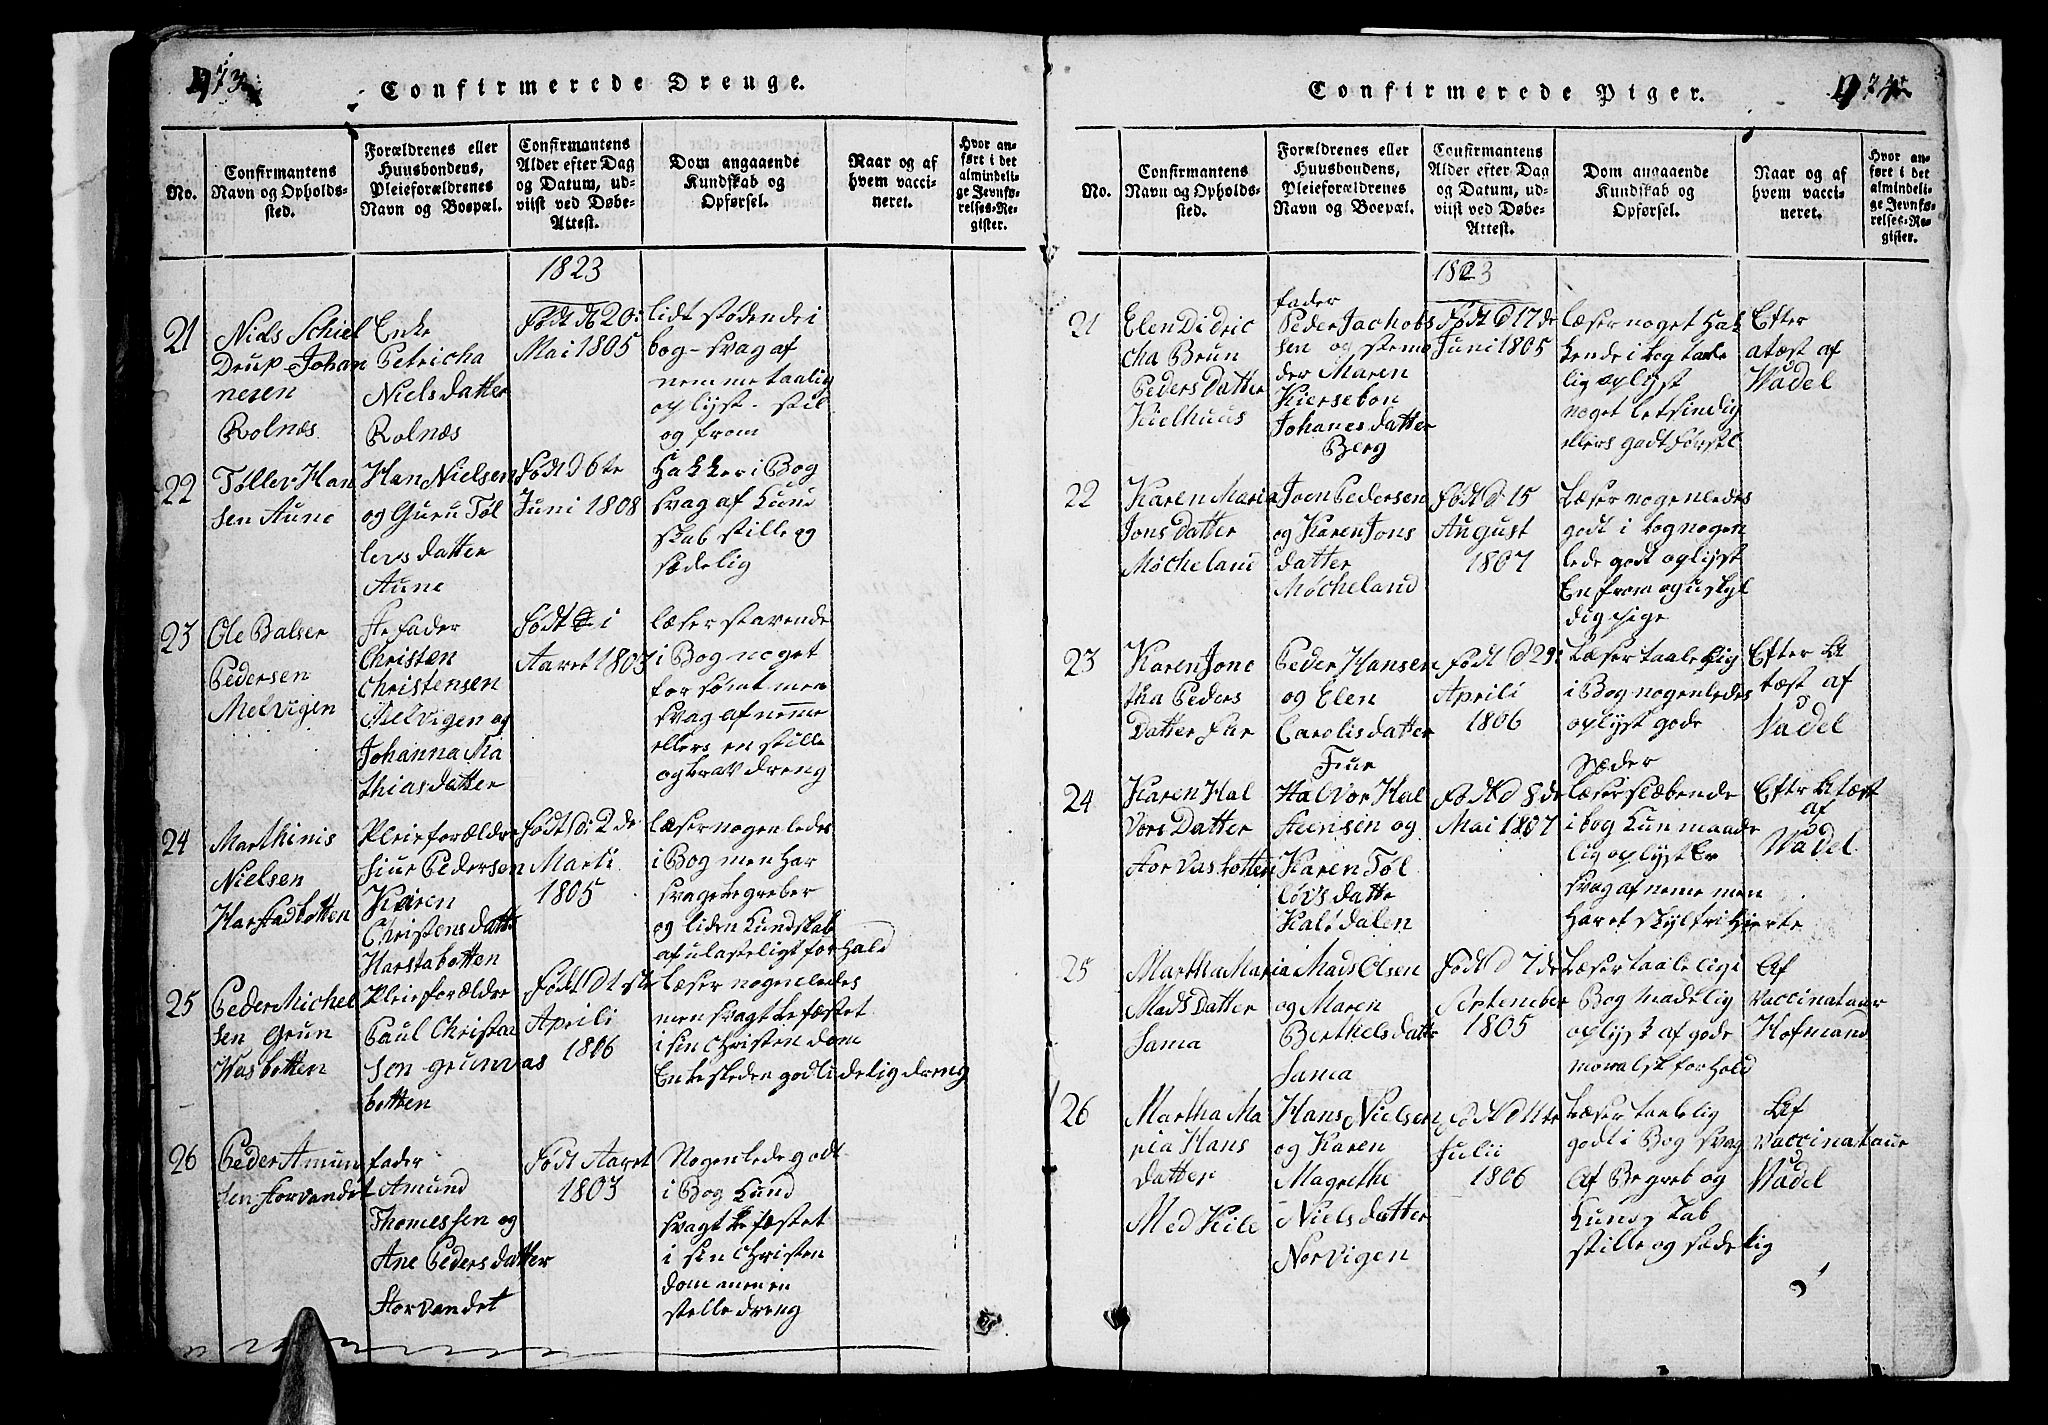 Confirmerede Drenge.
No.
Confirmantens
Navn og Opholds-
sted.
Forældrenes eller
Huusbondens,
Pleieforældrenes
Navn og Boepæl.
Confirmantens
Alder efter Dag
og Datum, ud-
viist ved Døbe-
Attest.
Dom angaaende
Kundskab og
Opførsel.
Naar og af
hvem vacci-
neret.
Hvor an-
ført i det
almindeli-
ge Jevnfø-
relses-Re-
gister.
1823
21
Niels Schiel
Drup Johan
nesen
Rolnæs
Enke
Petricha
Niels datter
Rolnæs
Født d 20:
Mai 1805
lidt stødende i
bog - svag af
nemme taalig
oplyst. stil
og from
22
Tøllev Han
sen Aune
Han Nielsen
og Guru Tøl
levs datter
Aune
Født d 6te
Juni 1808
Hakker i Bog
svag af Kund
skab stille og
sædelig
23
Ole Balser
Pedersen
Melvigen
Ste fader
Christen
Christensen
Melvigen og
Johanna Ma
thias datter
Født i
Aaret 1803
læser stavende
i Bog noget
forsømt men
svag af nemme
ellers en stille
og brav dreng
24
Marthinis
Nielsen
Harstadbotten
Pleieforældre
Siur Pedersen
Karen
Christens datter
Harstabotten
Født d: 2 de
Marti
1805
læser nogenledes
i Bog men har
svage begreber
og liden Kundskab
af ulasteligt forhold
25
Peder Michel
sen Grun
Wasbotten
Pleieforældre
Paul Christen
sen grunvas
botten
Født d 1 ste
Aprili
1806
læser nogenledes
men svagt befæstet
i sin Christendom
Enbeskeden godlidelig dreng
26
Peder Amun
sen Storvandet
fader
Amund
Thomessen og
Ane Peders datter
Storvandet
Født Aaret
1803
Nogenlede godt
i Bog Kund
svagt befæstet
i sin Christen
dom men en
stelle dreng
Confirmerede Piger.
No.
Confirmantens
Navn og Opholds-
sted.
Forældrenes eller
Huusbondens,
Pleieforældrenes
Navn og Boepæl.
Confirmantens
Alder efter Dag
og Datum, ud-
viist ved Døbe-
Attest.
Dom angaaende
Kundskab og
Opførsel.
Naar og af
hvem vacci-
neret.
Hvor an-
ført i det
almindeli-
ge Jevnfø-
relses-Re-
gister.
1823
21
Elen Didric
cha Brun
Peders Datter
Kielhuus
fader
Peder Jachob
sen og stemo
der Maren
Kiersebon
Johanes datter
Berg
Født d 17 de
Juni 1805
læser noget Hak
kende i bog taale
lig oplyst
noget letsindig
ellers godt
Efter
atæst af
Wadel
22
Karen Maria
Jons Datter
Møcheland
Joen Pedersen
og Karen Jons
datter
Møcheland
Født d 15
August
1807
Læser nogenledes
godt i bog nogen
lede godt oplyst
En from og uskyl
dig pige
23
Karen Jone
tha Peders
Datter Fur
Peder Hansen
og Elen
Carolis datter
Fuur
Født d 29:
Aprili
1806
Læser taalelig
i Bog nogenledes
oplyst gode
Sæder
Efter At
tæst af
Wadel
24
Karen Hal
vors Datter
Storvasbotten
Halvor Hal
steensen og
Karen Tøl
løvs datte
Kalsdalen
Født d 8 de
Mai 1807
læser slæbende
i bog kun maade
lig oplyst Er
svag af neme men
har et skylfri Hierte
Efter Atæst
af
Wadel
25
Martha Maria
Mads Datter
Sama
Mads Olsen
og Maren
Berthels datter
Sama
Født d 7 de
September
1805
Læser taalelig i
Bog madelig
oplyst af gode
moralsk forhold
Af
Vaccinatuur
Hofmand
26
Martha Ma
ria Hans
datter
Med Kile
Hans Nielsen
og Karen
Magrethe
Niels datter
Norvigen
Født d 11te
Julii
1806
Læser taalelig
godt i Bog svag
Af Begreb og
Kundskab
stille og sædelig
Af
Vaccinatuur
Wadel